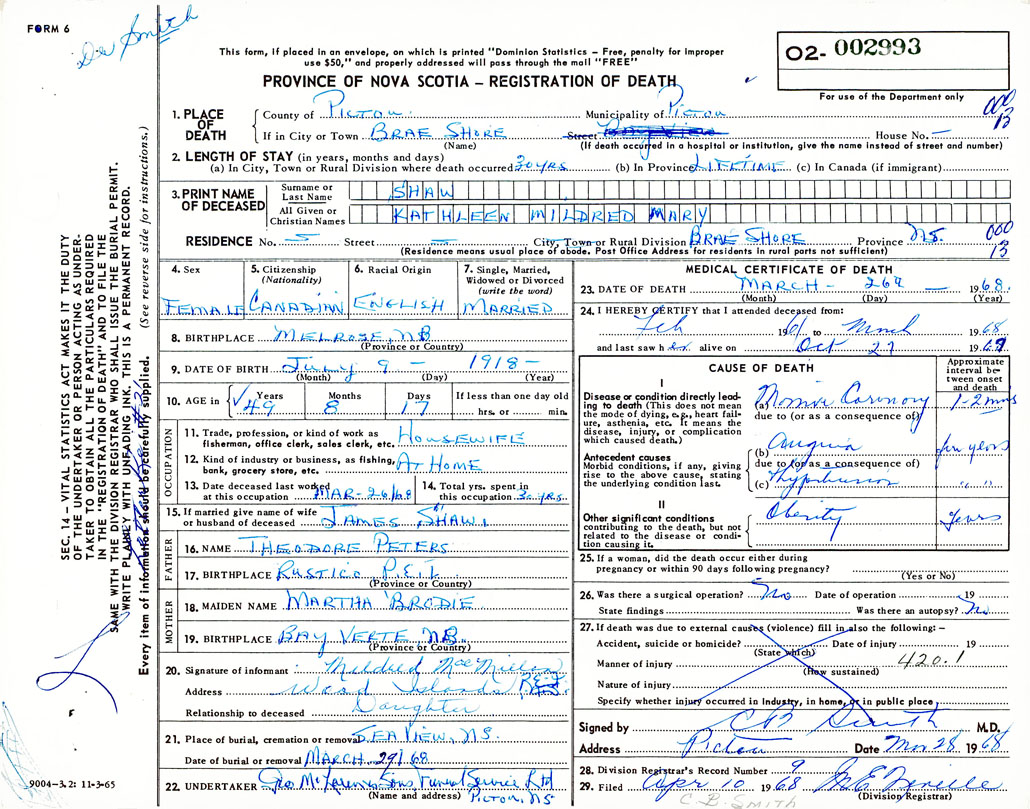 FORM 6
Dr Smith
This form, if placed in an envelope, on which is printed "Dominion Statistics – Free, penalty for improper
use $50," and properly addressed will pass through the mail "FREE"
PROVINCE OF NOVA SCOTIA – REGISTRATION OF DEATH
02- 002993
For use of the Department only
000
13
1. PLACE OF DEATH
County of Pictou Municipality of Pictou
If in City or Town BRAE SHORE Street House No. –
(Name) (If death occurred in a hospital or institution, give the name instead of street and number)
2. LENGTH OF STAY (in years, months and days)
(a) In City, Town or Rural Division where death occurred 30 yrs (b) In Province LIFETIME (c) In Canada (if immigrant)
3. PRINT NAME OF DECEASED
Surname or Last Name SHAW
All Given or Christian Names KATHLEEN MILDRED MARY
RESIDENCE No. Street City, Town or Rural Division BRAE SHORE Province N.S.
000
13
(Residence means usual place of abode. Post Office Address for residents in rural parts not sufficient)
4. Sex
FEMALE
5. Citizenship
(Nationality)
CANADIAN
6. Racial Origin
ENGLISH
7. Single, Married,
Widowed or Divorced
(write the word)
MARRIED
8. BIRTHPLACE MELROSE, NB
(Province or Country)
9. DATE OF BIRTH July 9 – 1918 –
(Month) (Day) (Year)
10. AGE in
Years 49
Months 8
Days 17
If less than one day old
hrs. or min.
OCCUPATION
11. Trade, profession, or kind of work as
fisherman, office clerk, sales clerk, etc. HOUSEWIFE
12. Kind of industry or business, as fishing,
bank, grocery store, etc. AT HOME
13. Date deceased last worked
at this occupation MAR-26/68
14. Total yrs. spent in
this occupation 30 yrs.
15. If married give name of wife
or husband of deceased JAMES SHAW
FATHER
16. NAME THEODORE PETERS
17. BIRTHPLACE RUSTICO P.E.I.
(Province or Country)
MOTHER
18. MAIDEN NAME MARTHA BRODIE
19. BIRTHPLACE BAY VERTE NB
(Province or Country)
20. Signature of informant Mildred MacMillan
Address Wood Islands P.E.I.
Relationship to deceased Daughter
21. Place of burial, cremation or removal SEA VIEW, N.S.
Date of burial or removal MARCH 29/68
22. UNDERTAKER Geo McLaren & Sons Funeral Service Ltd
(Name and address) Pictou, N.S.
MEDICAL CERTIFICATE OF DEATH
23. DATE OF DEATH MARCH – 26th – 1968
(Month) (Day) (Year)
24. I HEREBY CERTIFY that I attended deceased from:
Feb 1961 to March 1968
and last saw her alive on Oct 27 1967
CAUSE OF DEATH
Approximate
interval be-
tween onset
and death
I
Disease or condition directly lead-
ing to death (This does not mean
the mode of dying, e.g., heart fail-
ure, asthenia, etc. It means the
disease, injury, or complication
which caused death.)
(a) Coronary 1-2 mins
due to (or as a consequence of)
Antecedent causes
Morbid conditions, if any, giving
rise to the above cause, stating
the underlying condition last.
(b) Angina few years
due to (or as a consequence of)
(c) Hypertension " "
II
Other significant conditions
contributing to the death, but not
related to the disease or condi-
tion causing it.
Obesity years
25. If a woman, did the death occur either during
pregnancy or within 90 days following pregnancy?
(Yes or No)
26. Was there a surgical operation? No Date of operation 19
State findings Was there an autopsy? No
27. If death was due to external causes (violence) fill in also the following: –
Accident, suicide or homicide? Date of injury 19
(State which)
Manner of injury 420.1
(How sustained)
Nature of injury
Specify whether injury occurred in Industry, in home, or in public place
Signed by CB Smith M.D.
Address Pictou Date Mar 28 1968
28. Division Registrar's Record Number 9
29. Filed Apr 10 1968
(Division Registrar)
C. B. SMITH
SEC. 14 – VITAL STATISTICS ACT MAKES IT THE DUTY
OF THE UNDERTAKER OR PERSON ACTING AS UNDER-
TAKER TO OBTAIN ALL THE PARTICULARS REQUIRED
IN THE "REGISTRATION OF DEATH" AND TO FILE THE
SAME WITH THE DIVISION REGISTRAR WHO SHALL ISSUE THE BURIAL PERMIT.
WRITE PLAINLY WITH UNFADING INK. THIS IS A PERMANENT RECORD.
Every item of information should be carefully supplied. (See reverse side for instructions.)
F
9004–3.2: 11-3-65